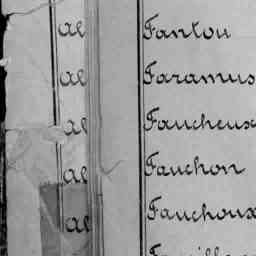 al Fantou
al Faramus
al Faucheux
al Fauchon
al Fauchoux